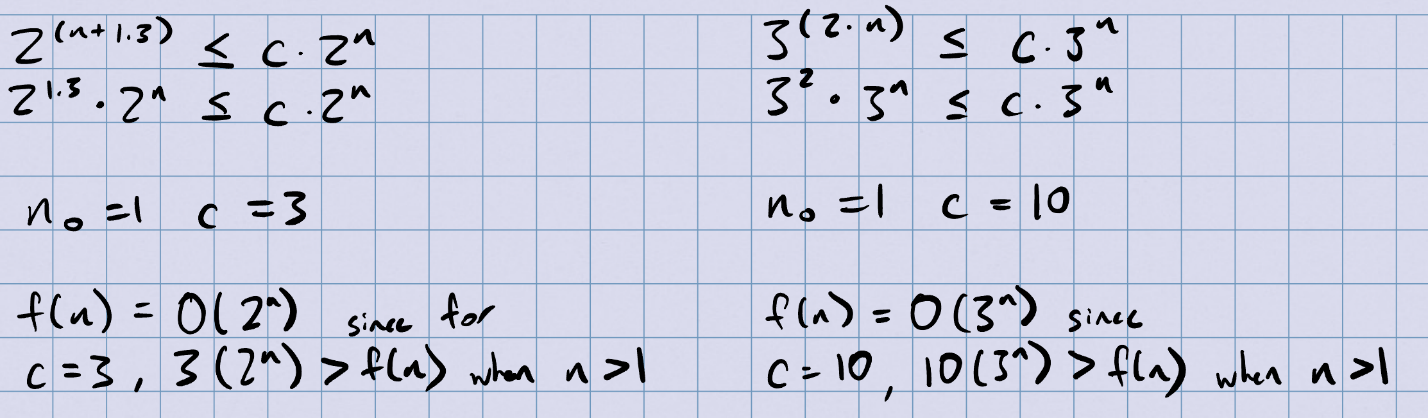 2^(n+1.3) ≤ c · 2^n
2^1.3 · 2^n ≤ c · 2^n
n₀ = 1 c = 3
f(n) = O(2^n) since for
c = 3, 3(2^n) > f(n) when n > 1
3^(2·n) ≤ c · 3^n
3^2 · 3^n ≤ c · 3^n
n₀ = 1 c = 10
f(n) = O(3^n) since
c = 10, 10(3^n) > f(n) when n > 1